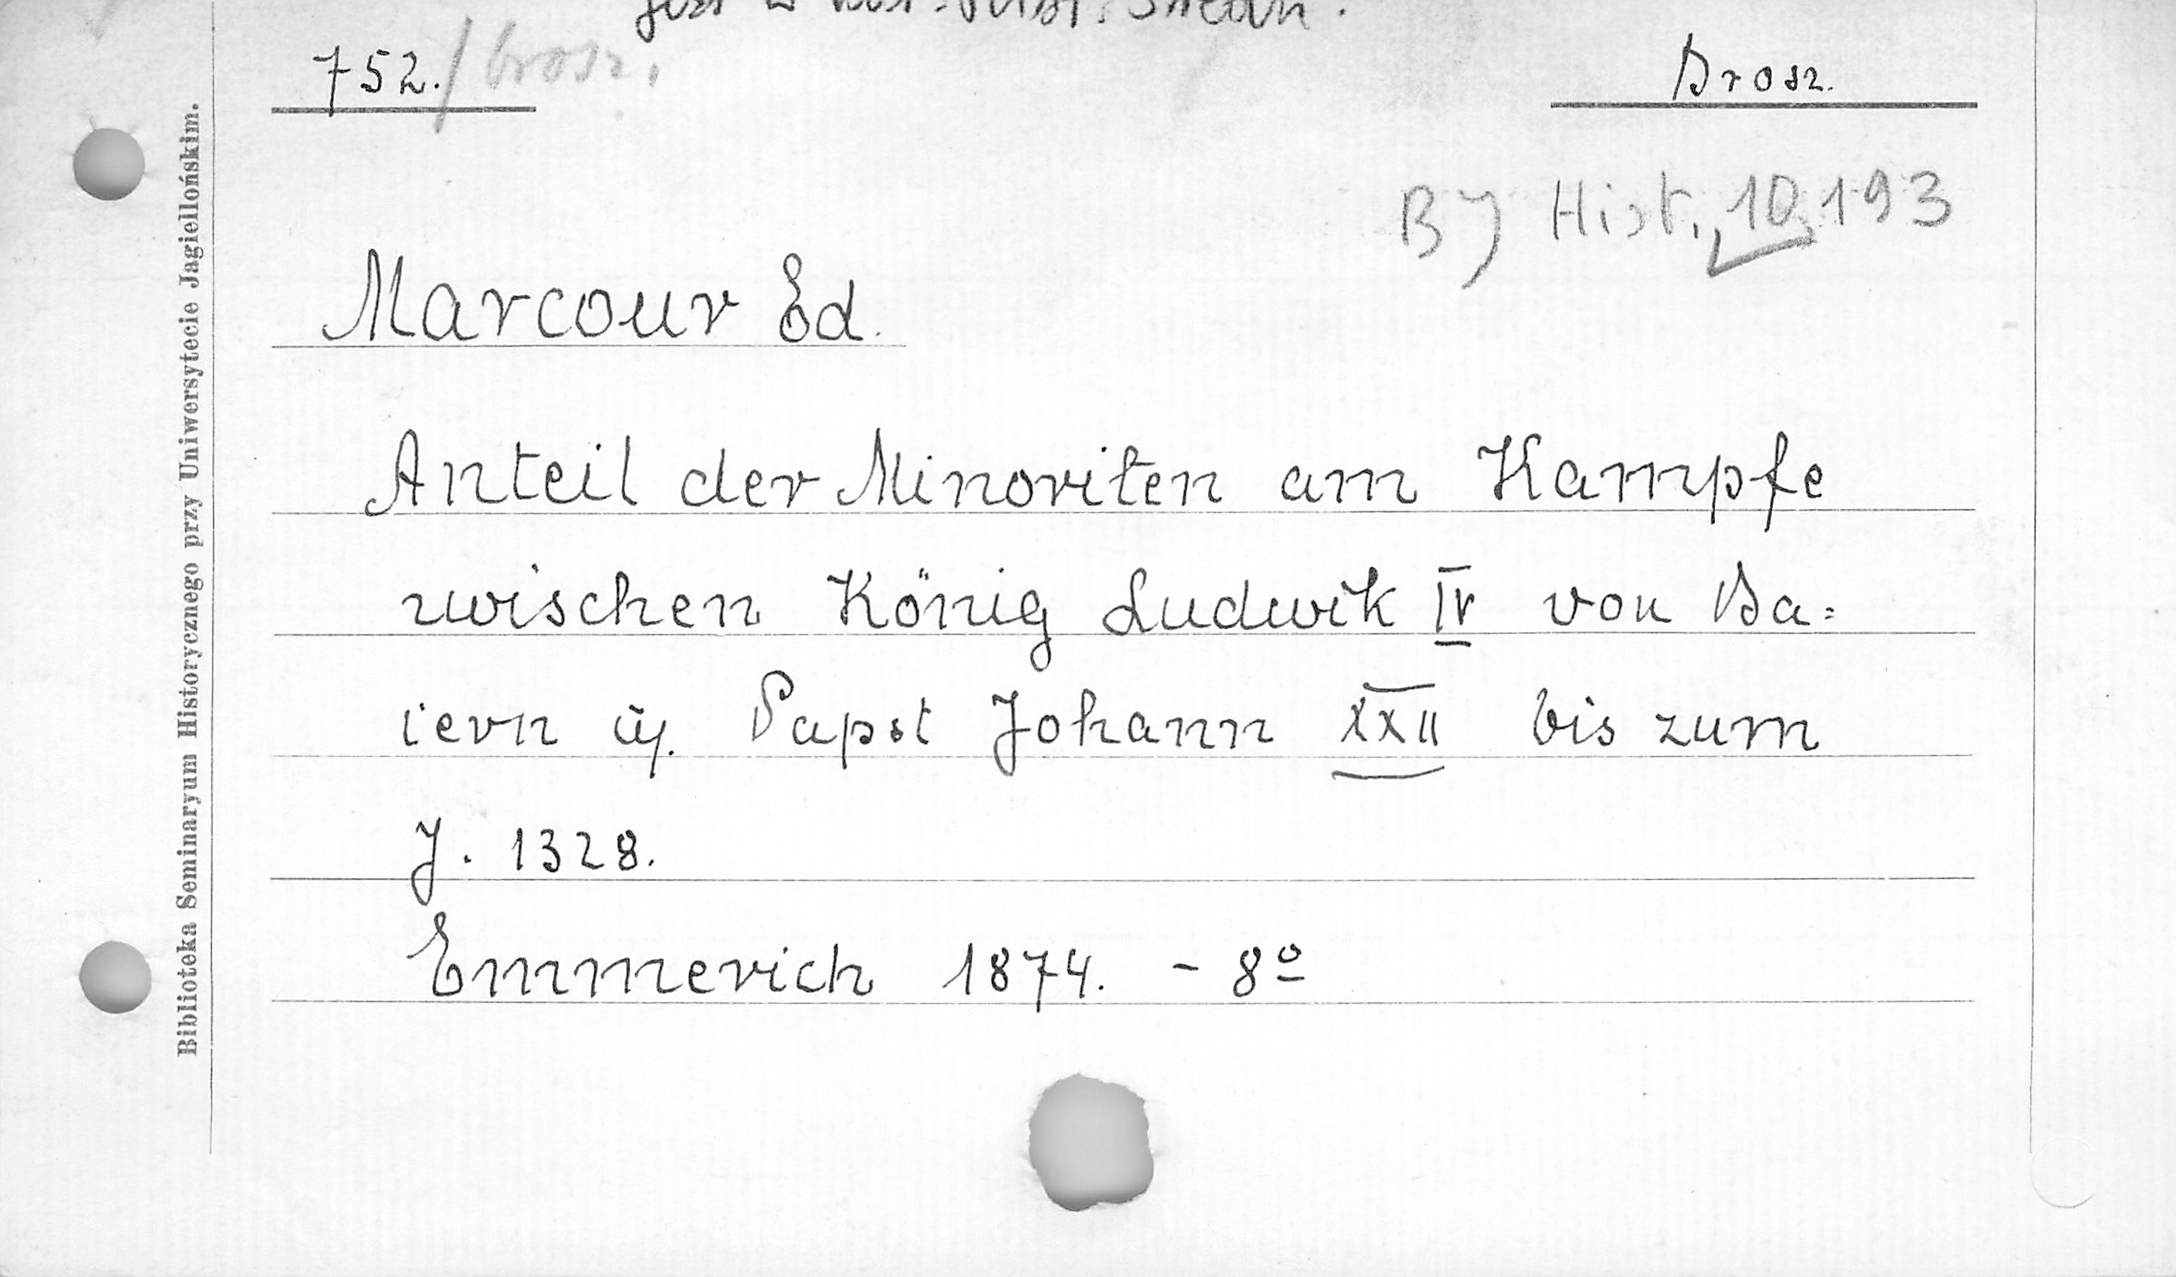 752./brosz.
Brosz.
BJ Hist. 10.193
Marcour Ed.
Anteil der Minoriten am Kampfe
zwischen König Ludwik IV von Ba=
iern u. Papst Johann XXII bis zum
J. 1328.
Emmerich 1874. - 8º
Biblioteka Seminaryum Historycznego przy Uniwersytecie Jagiellońskim.